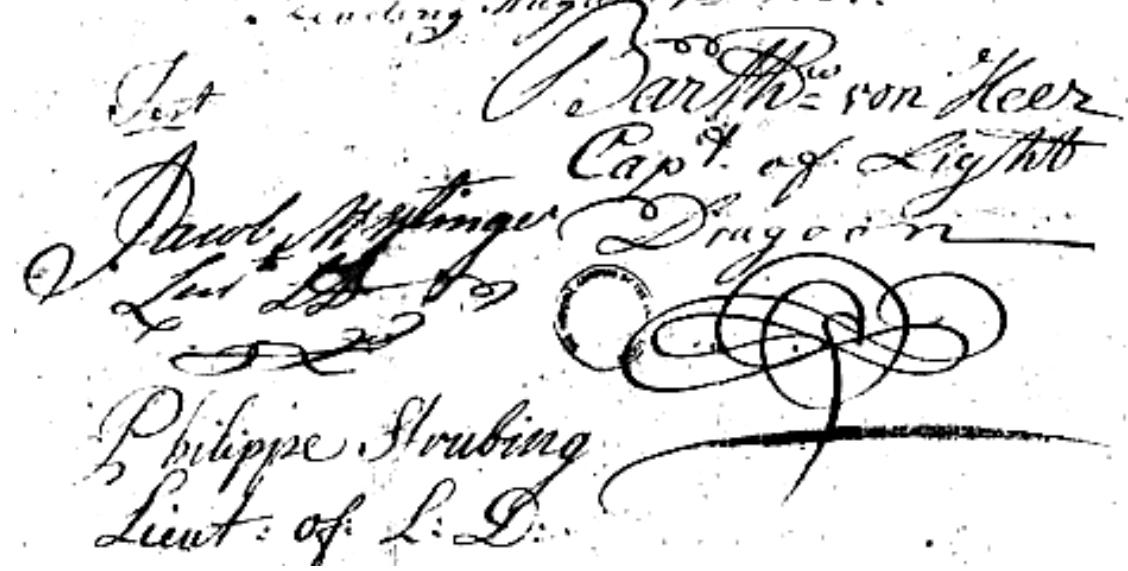 Reading
Test
Barthw von Heer
Capt. of Light
Dragoon
Jacob Mytinger
Lieut LD
Philippe Strubing
Lieut: of: L: D: